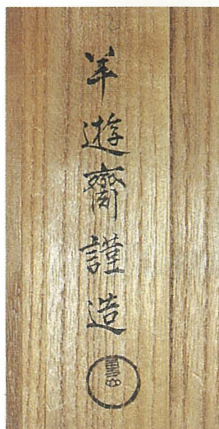 羊遊齋謹造